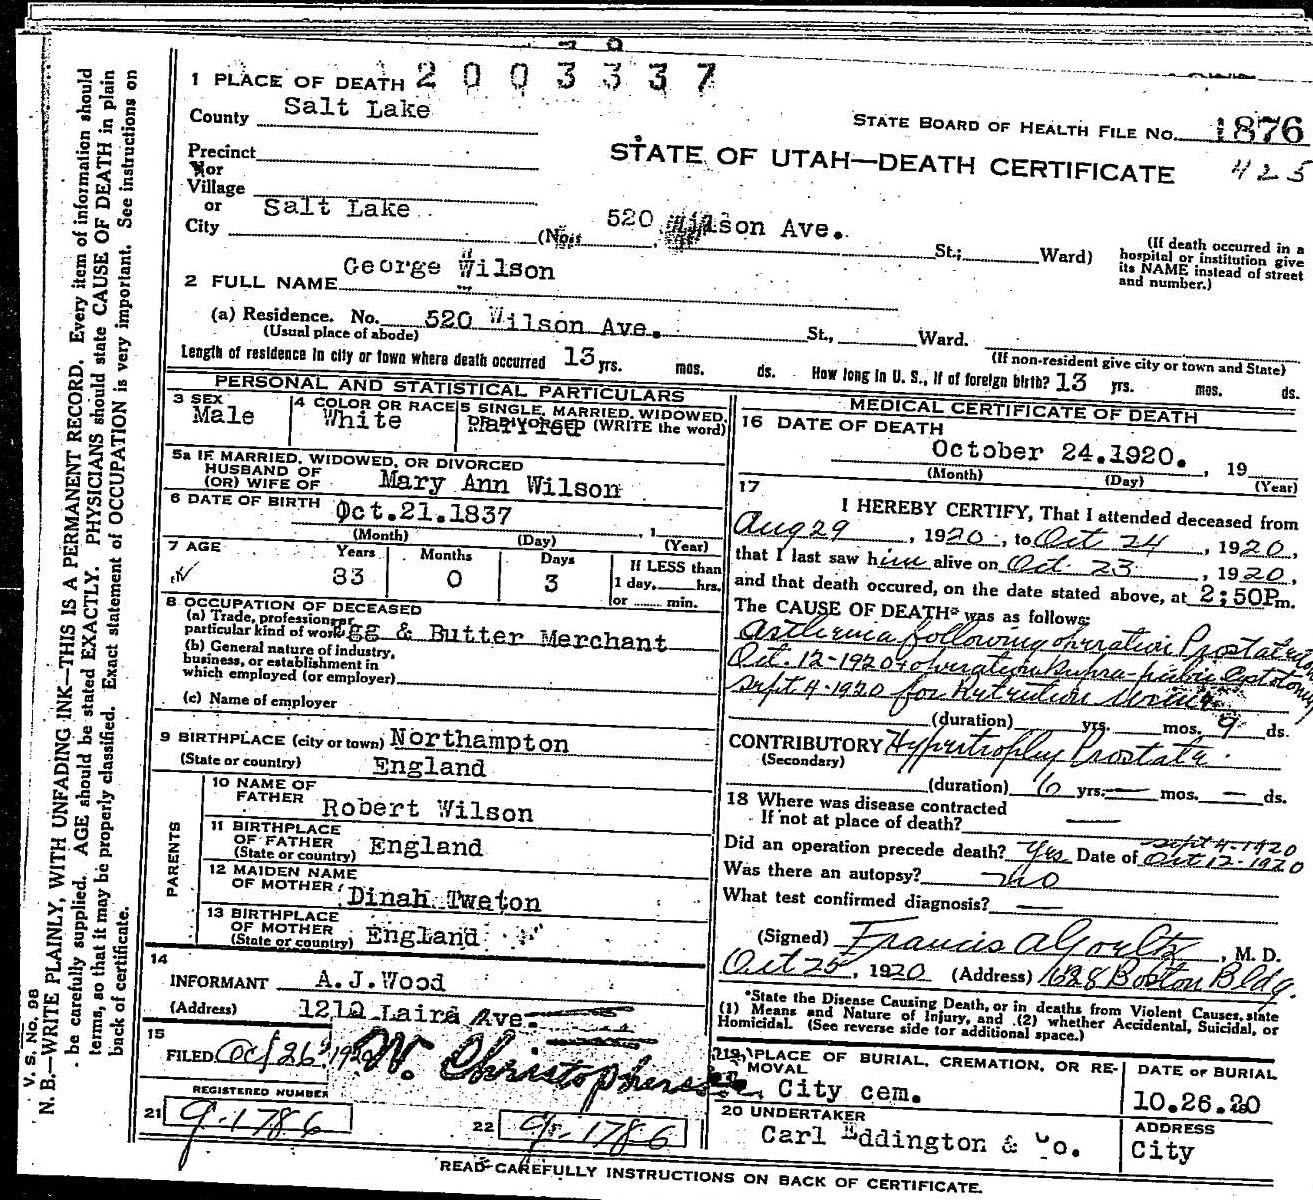 2003337
1 PLACE OF DEATH
County Salt Lake
STATE BOARD OF HEALTH FILE No. 1876
Precinct
or
Village
or
City Salt Lake
STATE OF UTAH—DEATH CERTIFICATE
425
(No. 520 Wilson Ave. St.; Ward)
(If death occurred in a
hospital or institution give
its NAME instead of street
and number.)
2 FULL NAME George Wilson
(a) Residence. No. 520 Wilson Ave. St., Ward.
(Usual place of abode)
(If non-resident give city or town and State)
Length of residence in city or town where death occurred 13 yrs. mos. ds. How long in U. S., if of foreign birth? 13 yrs. mos. ds.
PERSONAL AND STATISTICAL PARTICULARS
3 SEX
Male
4 COLOR OR RACE
White
5 SINGLE, MARRIED, WIDOWED,
OR DIVORCED (WRITE the word)
Married
5a IF MARRIED, WIDOWED, OR DIVORCED
HUSBAND OF
(OR) WIFE OF Mary Ann Wilson
6 DATE OF BIRTH Oct.21.1837 , 1
(Month) (Day) (Year)
7 AGE Years Months Days
83 0 3
If LESS than
1 day, hrs.
or min.
8 OCCUPATION OF DECEASED
(a) Trade, profession or
particular kind of work Egg & Butter Merchant
(b) General nature of industry,
business, or establishment in
which employed (or employer)
(c) Name of employer
9 BIRTHPLACE (city or town) Northampton
(State or country) England
PARENTS
10 NAME OF
FATHER Robert Wilson
11 BIRTHPLACE
OF FATHER
(State or country) England
12 MAIDEN NAME
OF MOTHER Dinah Tweton
13 BIRTHPLACE
OF MOTHER
(State or country) England
14
INFORMANT A.J.Wood
(Address) 1210 Laird Ave.
15
FILED Oct 26, 1920 W. Christophersen
REGISTERED NUMBER
21 9-1786
22 9-1786
MEDICAL CERTIFICATE OF DEATH
16 DATE OF DEATH
October 24.1920. , 19
(Month) (Day) (Year)
17
I HEREBY CERTIFY, That I attended deceased from
Aug 29, 1920, to Oct 24, 1920,
that I last saw him alive on Oct. 23, 1920,
and that death occured, on the date stated above, at 2;50P m.
The CAUSE OF DEATH* was as follows:
Asthenia following operation
Oct. 12-1920 & operation Supra-pubic Cystotomy
Sept 4-1920 for Retention urine
(duration) yrs. mos. 9 ds.
CONTRIBUTORY Hypertrophy Prostate
(Secondary)
(duration) 6 yrs. — mos. — ds.
18 Where was disease contracted
If not at place of death? —
Did an operation precede death? Yes Date of Sept 4-1920
Oct 12-1920
Was there an autopsy? no
What test confirmed diagnosis? —
(Signed) Francis A Goeltz, M. D.
Oct 25, 1920 (Address) 628 Boston Bldg.
*State the Disease Causing Death, or in deaths from Violent Causes, state
(1) Means and Nature of Injury, and (2) whether Accidental, Suicidal, or
Homicidal. (See reverse side for additional space.)
19 PLACE OF BURIAL, CREMATION, OR RE-
MOVAL
City cem.
DATE OF BURIAL
10.26.20
20 UNDERTAKER
Carl Eddington & Co.
ADDRESS
City
READ CAREFULLY INSTRUCTIONS ON BACK OF CERTIFICATE.
V. S. No. 98
N. B.—WRITE PLAINLY, WITH UNFADING INK—THIS IS A PERMANENT RECORD. Every item of information should
be carefully supplied. AGE should be stated EXACTLY. PHYSICIANS should state CAUSE OF DEATH in plain
terms, so that it may be properly classified. Exact statement of OCCUPATION is very important. See instructions on
back of certificate.